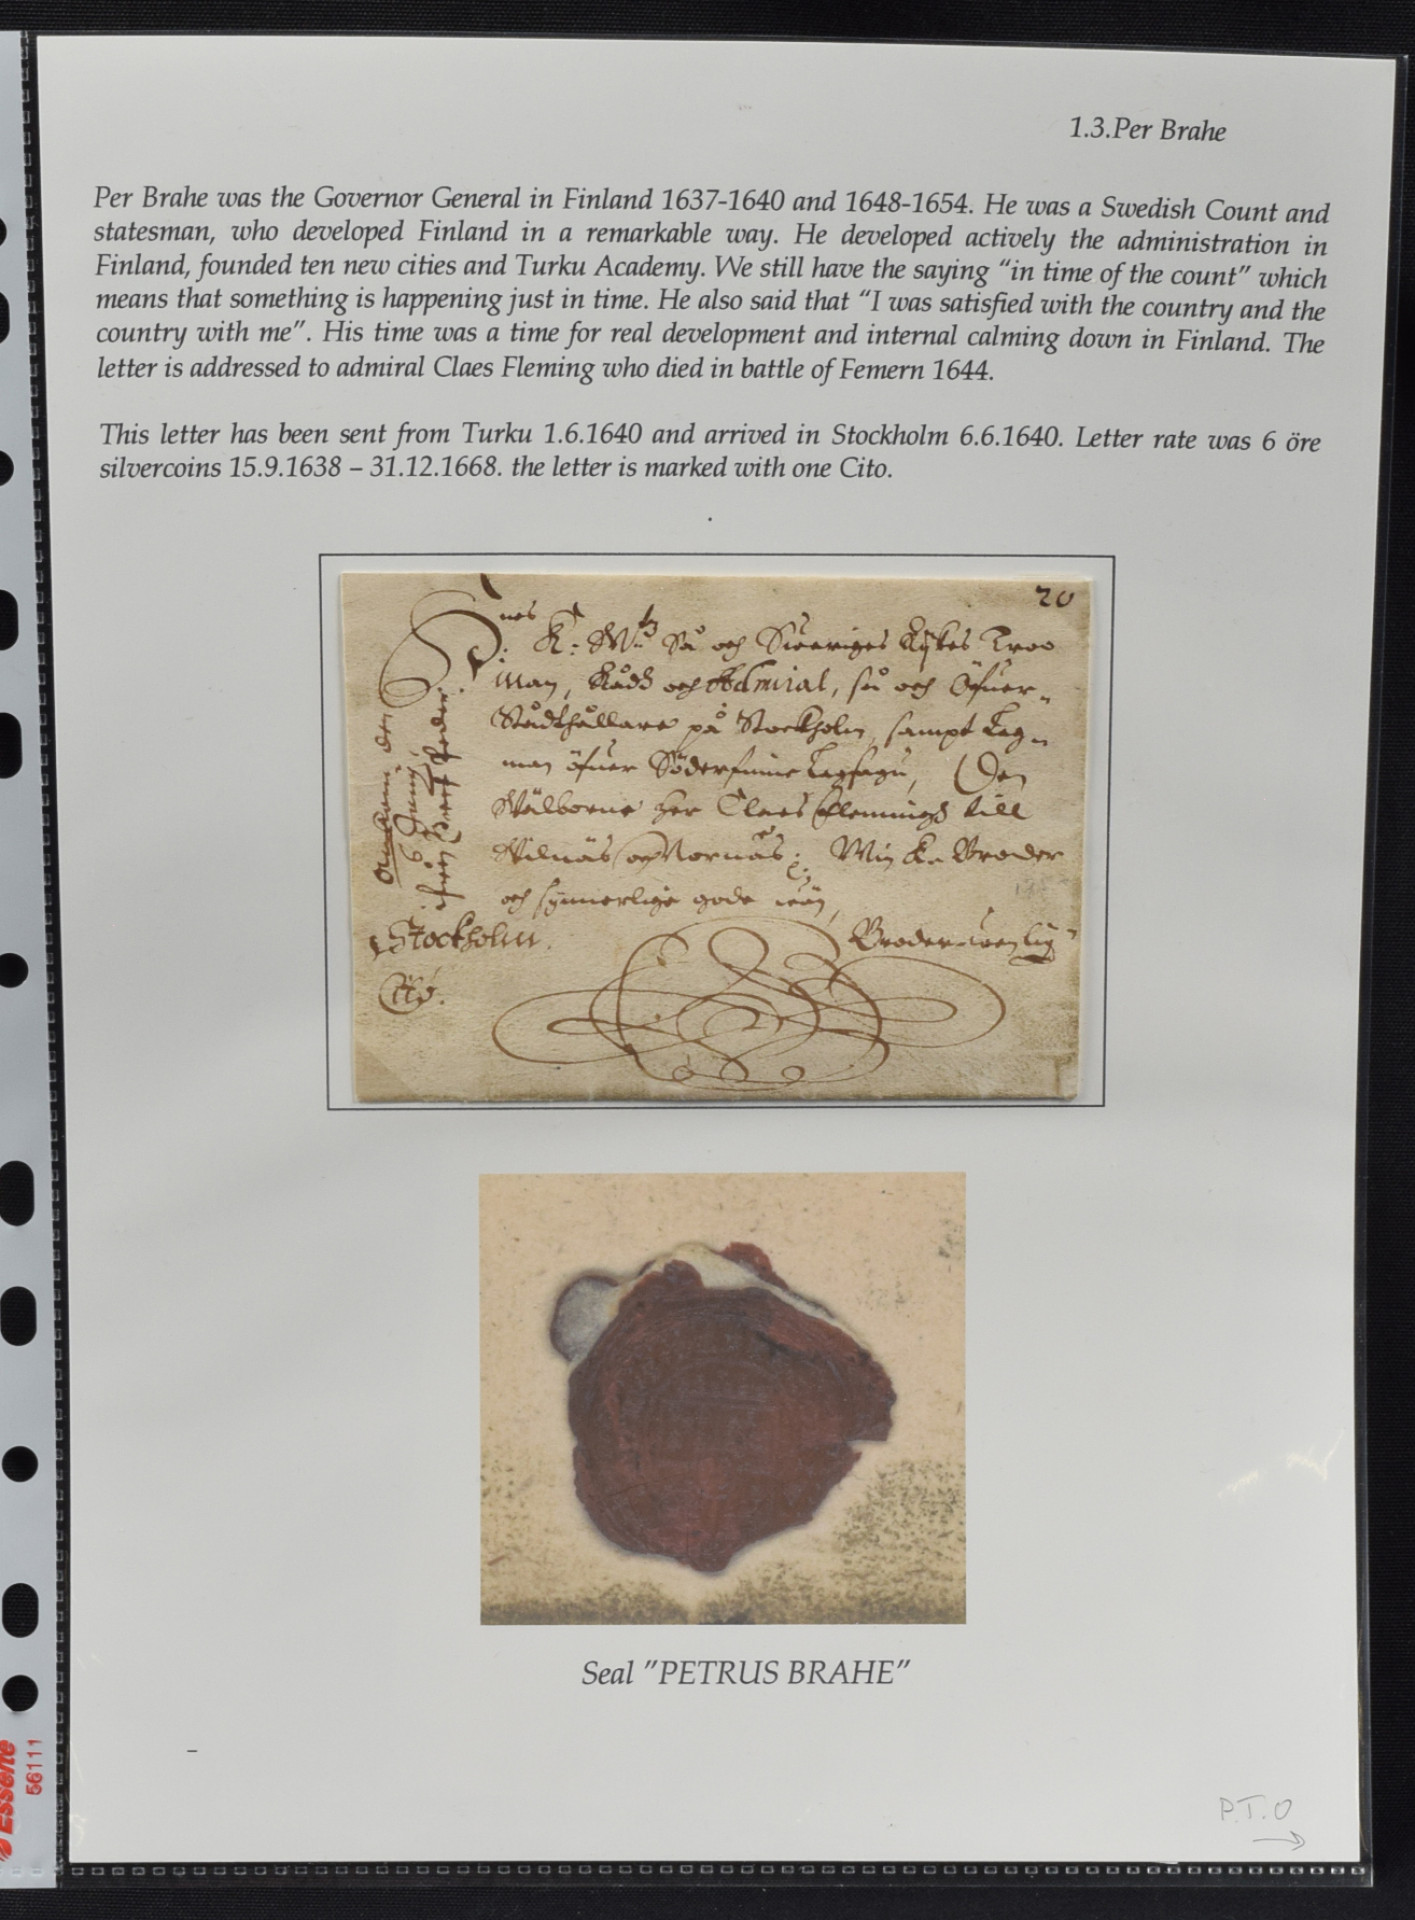 1.3.Per Brahe
Per Brahe was the Governor General in Finland 1637-1640 and 1648-1654. He was a Swedish Count and
statesman, who developed Finland in a remarkable way. He developed actively the administration in
Finland, founded ten new cities and Turku Academy. We still have the saying “in time of the count” which
means that something is happening just in time. He also said that “I was satisfied with the country and the
country with me”. His time was a time for real development and internal calming down in Finland. The
letter is addressed to admiral Claes Fleming who died in battle of Femern 1644.
This letter has been sent from Turku 1.6.1640 and arrived in Stockholm 6.6.1640. Letter rate was 6 öre
silvercoins 15.9.1638 – 31.12.1668. the letter is marked with one Cito.
20
K: M:tz Rå och Sweriges Rijkes Troo
man, Rådh och Admiral, så och Öfuer-
Ståthållare på Stockholm, sampt Lag-
man öfuer Söderfinne Lagsagu, Den
Wälborne Her Claes Flemingh till
Wilnäs och Nornäs; Min K. Broder
och synnerlige gode wän,
Broder-wenlig
Ankom den
6 Junij
Stockholm.
Cito.
Seal ”PETRUS BRAHE”
P.T.O
Esselte
56111